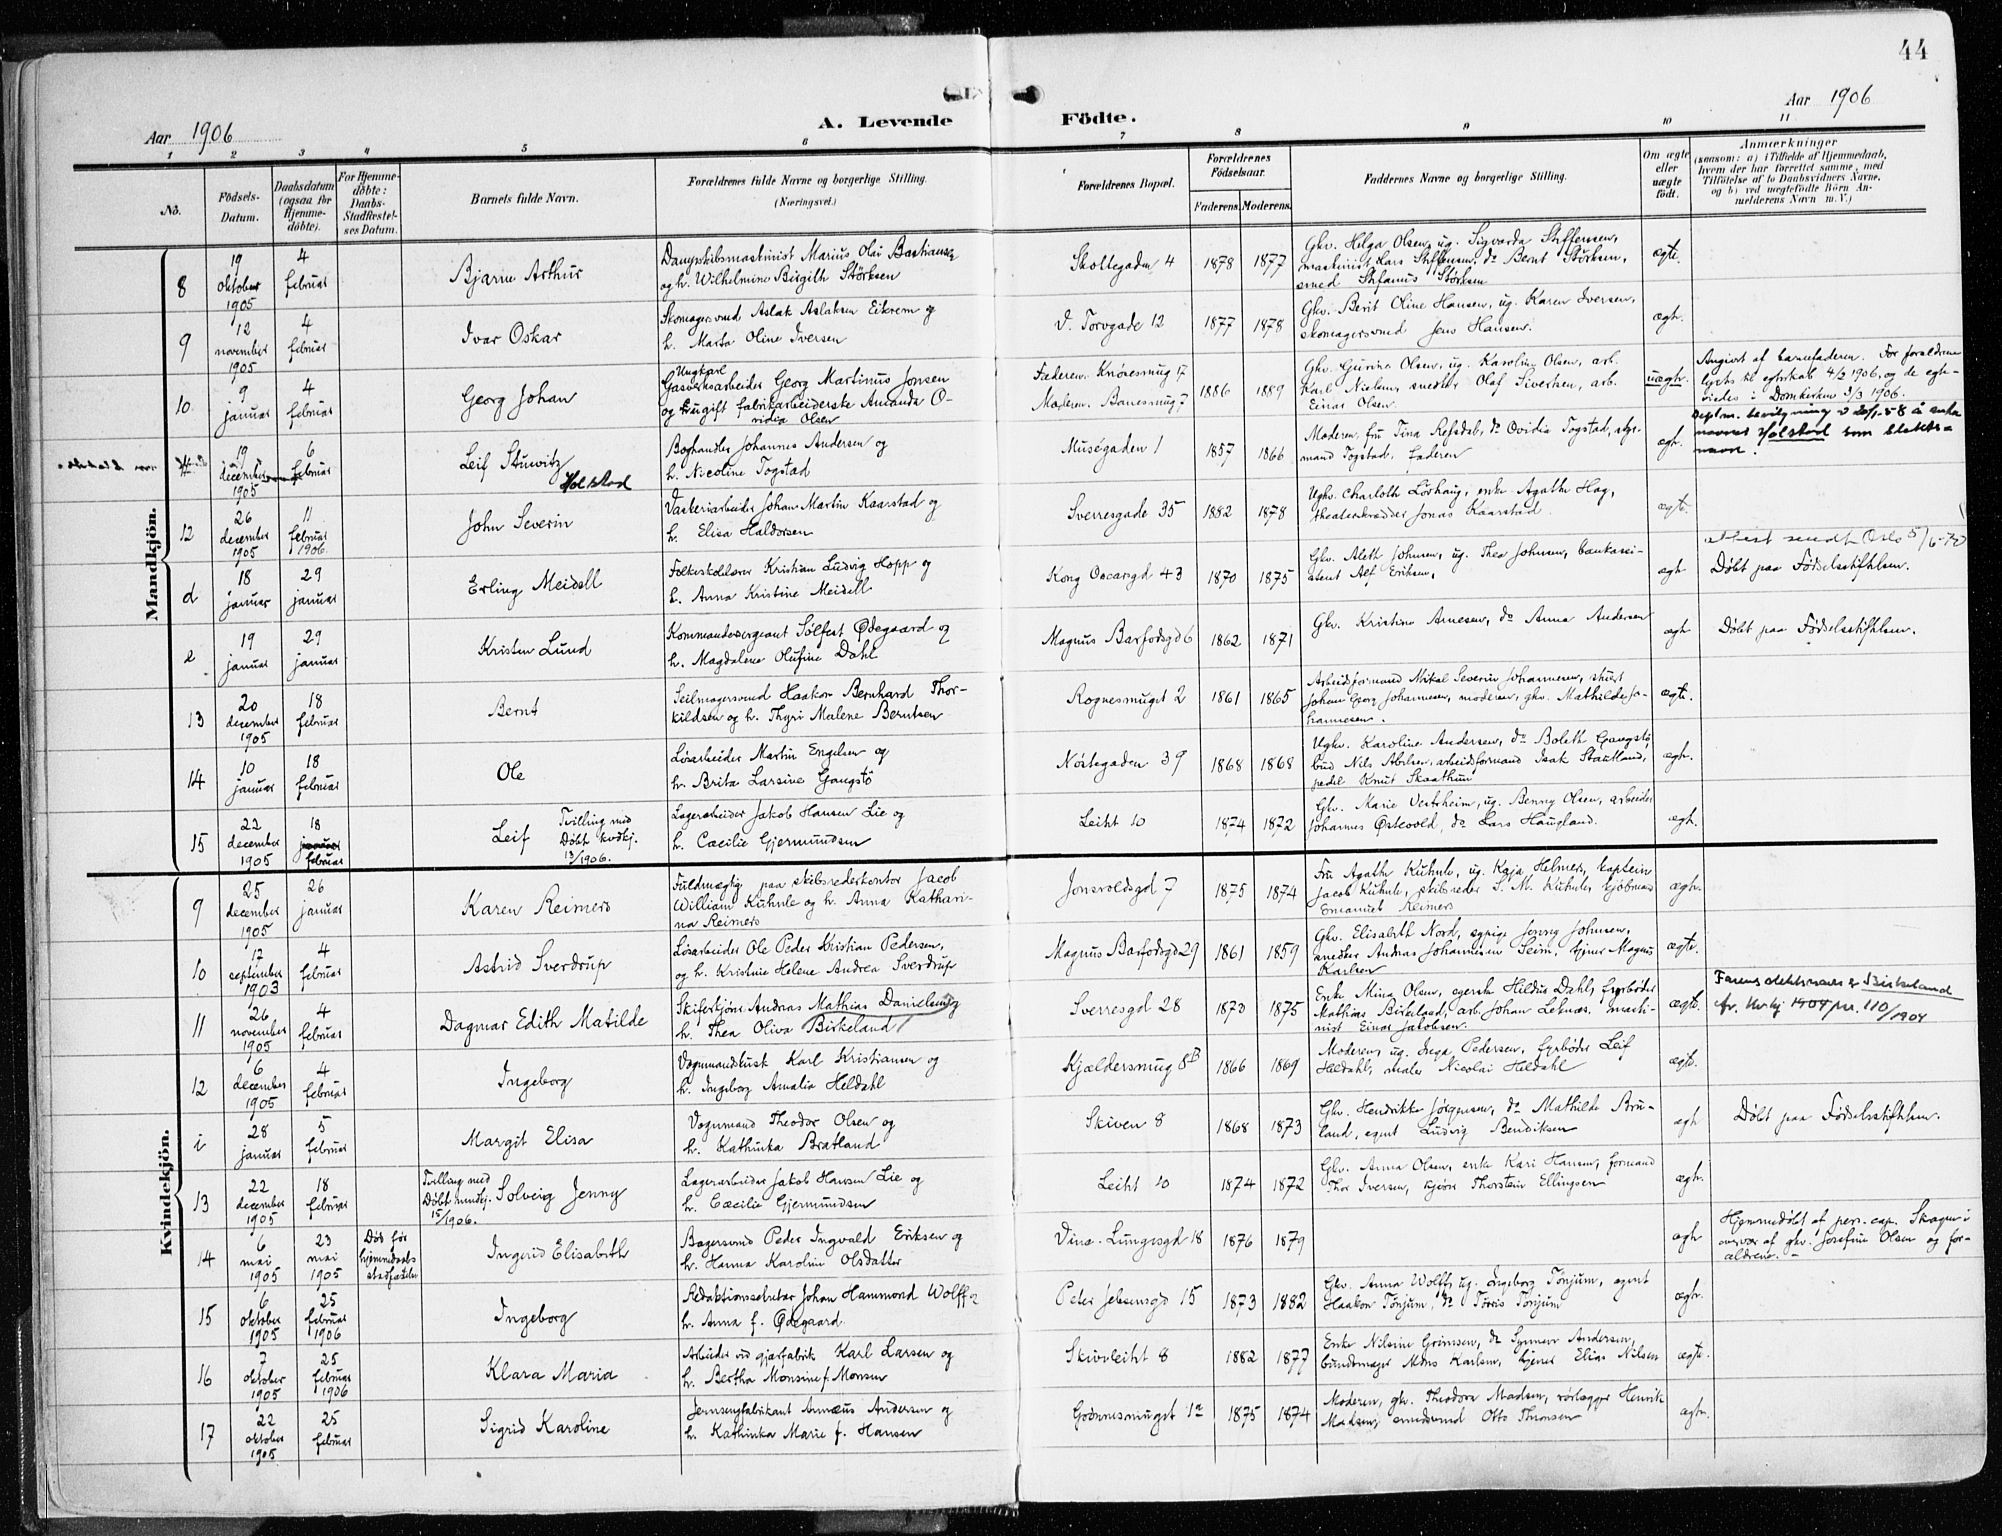 44
Aar 1906
A. Levende Födte.
Aar 1906
1 2 3 4 5 6 7 8 9 10 11
No.
Födsels-Datum.
Daabsdatum (ogsaa for Hjemme-döbte).
For Hjemme-döbte: Daabs-Stadfæstel-ses Datum.
Barnets fulde Navn.
Forældrenes fulde Navne og borgerlige Stilling.
(Næringsvei.)
Forældrenes Bopæl.
Forældrenes Födselsaar.
Faderens. Moderens.
Faddernes Navne og borgerlige Stilling.
Om ægte eller uægte födt.
Anmærkninger
(saasom: a) i Tilfælde af Hjemmedaab, hvem der har forrettet samme, med Tilföielse af to Daabsvidners Navne, og b) ved uægtefödte Börn An-melderens Navn m. V.)
Mandkjön.
8
19 oktober 1905
4 februar
Bjarne Arthur
Dampskibsmaskinist Marius Olai Bastiansen
og h. Wilhelmine Birgith Störksen
Skottegaden 4
1878 1877
Gkv. Helga Olsen, ug. Sigvarda Steffensen,
maskinist Lars Steffensen, do Bernt Störksen,
smed Stefanus Störksen
ægte.
9
12 november 1905
4 februar
Ivar Oskar
Skomagersvend Aslak Aslaksen Eikrem og
h. Marta Oline Iversen
V. Torvgade 12
1877 1878
Gkv. Berit Oline Hansen, ug. Karen Iversen,
skomagersvend Jens Hansen.
ægte.
10
9 januar
4 februar
Georg Johan
Ungkarl
Gasverksarbeider Georg Martinus Jonsen
og ugift fabrikarbeiderske Amanda O-
vidia Olsen
Faderen Knösesmug 17
Moderen
1886 1889
Gkv. Gurine Olsen, ug. Karoline Olsen, arb.
Karl Nielsen, snedker Olaf Sivertsen, arb.
Einar Olsen
uægte.
Angivet af barnefaderen. For forældrene
lyst til egteskab 4/2 1906, og de egte-
viedes i Domkirken 3/3 1906.
19 december 1905
6 februar
Leif Stuwitz
Holstad
Boghandler Johannes Andersen og
h. Nicoline Togstad
Muségaden 1
1857 1866
Moderen, fru Tina Refsdal, do Ovidia Togstad, styr-
mand Togstad, faderen
ægte.
bevilgning 20/1-58 å anta
navnet Holstad som slekts-
navn.
12
26 december 1905
11 februar 1906
John Severin
Væskeriarbeider Johan Martin Kaarstad og
h. Elisa Haldorsen
Sverresgade 35
1882 1878
Ugkv. Charloth Lövhaug, enke Agathe Hag,
Jonas Kaarstad.
ægte.
d
18 januar
29 januar
Erling Meidell
Folkeskolelærer Kristian Ludvig Hopp og
h. Anna Kristine Meidell
Kong Oscarsgd 43
1870 1875
Gkv. Aleth Johnsen, ug. Thea Johnsen, bankassi-
stent Alf Eriksen,
ægte
Attest sendt Oslo 5/6-70
Döbt paa Födselsstiftelsen.
e
19 januar
29 januar
Kristen Lund
Kommandersergeant Sölfest Ödegaard og
h. Magdalene Olufine Dahl
Magnus Barfodsgd 6
1862 1871
Gkv. Kristine Arnesen, do Anna Andersen
ægte
Döbt paa Födselsstiftelsen.
13
20 december 1905
18 februar
Bernt
Seilmagersvend Haakon Bernhard Thor-
kildsen og h. Thyri Malene Berntsen
Rognesmuget 2
1861 1865
Arbeidsformand Nikal Severin Johannesen, skuesp
Johan Georg Johannesen, moderen, gkv. Mathilde Jo-
hannesen.
ægte.
14
10 januar
18 februar
Ole
Lösarbeider Martin Engelsen og
h. Brita Larsine Gangstö
Nöstegaden 39
1868 1868
Ugkv. Karoline Andersen, do Boleth Gangstö,
bud Nils Abelsen, arbeidsformand Isak Stautland,
pedel Knut Skaathun
ægte.
15
22 december 1905
18 februar
Leif
Tvilling med
Döbt kvdkj.
13/1906.
Lagerarbeider Jakob Hansen Lie og
h. Cæcilie Gjermundsen
Leiht 10
1874 1872
Gkv. Marie Vertrheim, ug. Benny Olsen, arbeider
Johannes Östevold, do Lars Haugland.
ægte.
Kvindekjön.
9
25 december 1905
26 januar
Karen Reimers
Fuldmægtig paa skibsrederkontor Jacob
William Kuhnle og h. Anna Kathari-
na Reimers
Jonsvoldsgd 7
1875 1874
Fru Agathe Kuhnle, ug. Kaja Helmers, kaptein
Jacob Kuhnle, skibsreder S. M. Kuhnle, kjöbmand
Emanuel Reimers
ægte.
10
17 september 1903
4 februar
Astrid Sverdrup
Lösarbeider Ole Peder Kristian Pedersen,
og h. Kristine Helene Andrea Sverdrup
Magnus Barfodsgd 29
1861 1859
Gkv. Elisabeth Nord, sypige Jenny Johnsen,
snedker Andreas Johannesen Seim, tjener Magnus
Karlsen
ægte.
11
26 november 1905
4 februar
Dagmar Edith Matilde
Andreas Mathias Danielsen og
h. Thea Oliva Birkeland
Sverresgd 28
1870 1875
Enke Mina Olsen, syerske Hildus Dahl, fyrböder
Mathias Birkeland, arb. Johan Leknæs, maski-
nist Einar Jakobsen.
ægte.
Farens slektsnavn er Birkeland
1904 nr. 110/1904
12
6 december 1905
4 februar
Ingeborg
Vognmandskusk Karl Kristiansen og
h. Ingeborg Amalia Heldahl
Kjældersmug 8B
1866 1869
Moderen, ug. Inga Pedersen, fyrböder Leif
Heldahl, maler Nicolai Heldahl
ægte.
i
28 januar
5 februar
Margit Elisa
Vognmand Theodor Olsen og
h. Kathinka Bratland
Skiven 8
1868 1873
Gkv. Hendrikke Jörgensen, do Mathilde Bru-
land, agent Ludvig Bendiksen
ægte
Döbt paa Födselsstiftelsen.
13
22 december 1905
18 februar
Tvilling med
Döbt mandkj.
15/1906.
Solveig Jenny
Lagerarbeider Jakob Hansen Lie og
h. Cæcilie Gjermundsen
Leiht 10
1874 1872
Gkv. Anna Olsen, enke Kari Hansen, formand
Thor Iversen, kjörer Thorstein Ellingsen
ægte.
14
6 mai 1905
23 mai 1905
Död før hjemmedaabs stadfæstelse
Ingerid Elisabeth
Bagersvend Peder Ingvald Eriksen og
h. Hanna Karoline Olsdatter
Vine-Lungesgd 18
1876 1879
ægte
Hjemmedöbt af pers. cap. Skagen i
overvær af gkv. Josefine Olsen og for-
ældrene.
15
6 oktober 1905
25 februar 1906
Ingeborg
Redaktionssekretær Johan Hammond Wolff og
h. Anna f. Ødegaard
Peter Jebsensgd 15
1873 1882
Gkv. Anna Wolff, ug. Ingeborg Tönjum, agent
Haakon Tönjum, do Torris Tönjum
ægte.
16
7 oktober 1905
25 februar 1906
Klara Maria
Arbeider ved gjærfabrik Karl Larsen og
h. Bertha Monsine f. Monsen
Skivebeiht 8
1882 1877
Enke Nilsine Grimsen, do Synneve Andersen,
bundtmager Mons Karlsen, tjener Elias Nilsen
ægte.
17
22 oktober 1905
25 februar
Sigrid Karoline
Jernsengfabrikant Annæus Andersen og
h. Kathinka Marie f. Hansen
Grönnesmuget 1a
1875 1874
Moderen, gkv. Theodora Madsen, rörlægger Henrik
Madsen, smedsvend Otto Thronsen
ægte.